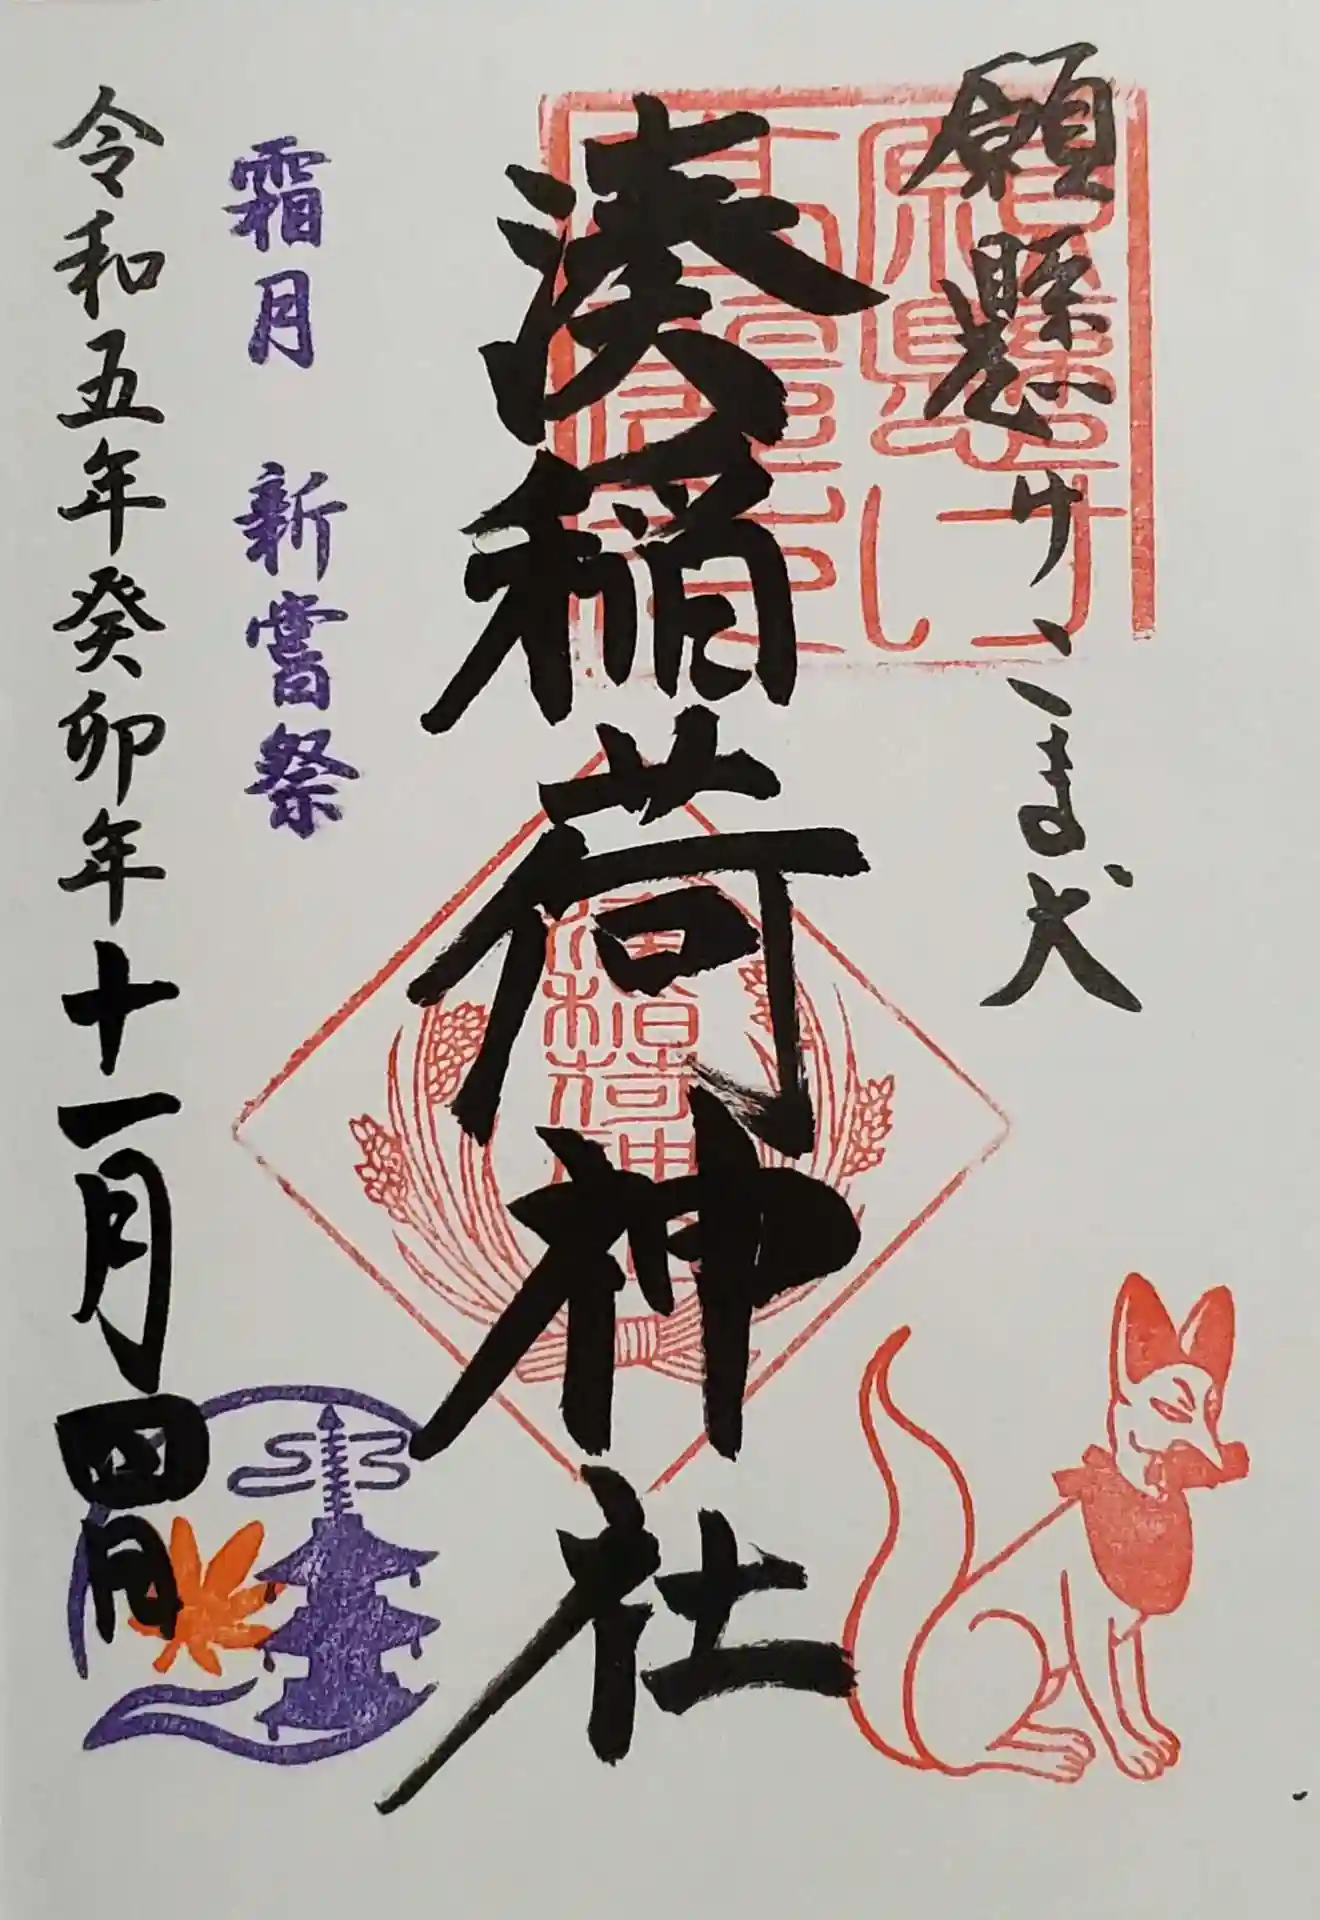 願懸けこま犬
湊稲荷神社
霜月 新嘗祭
令和五年癸卯年十一月四日
稲荷神